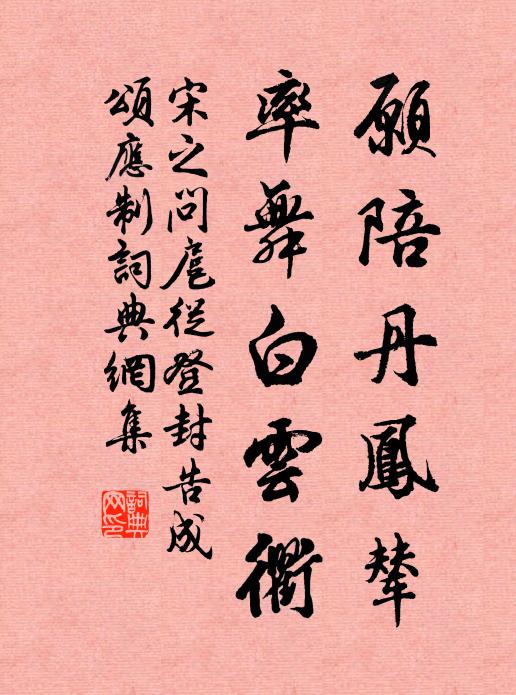 願陪丹鳳輦
率舞白雲衢
宋之問扈從登封告成
頌應制詞典網集
詞典
网印